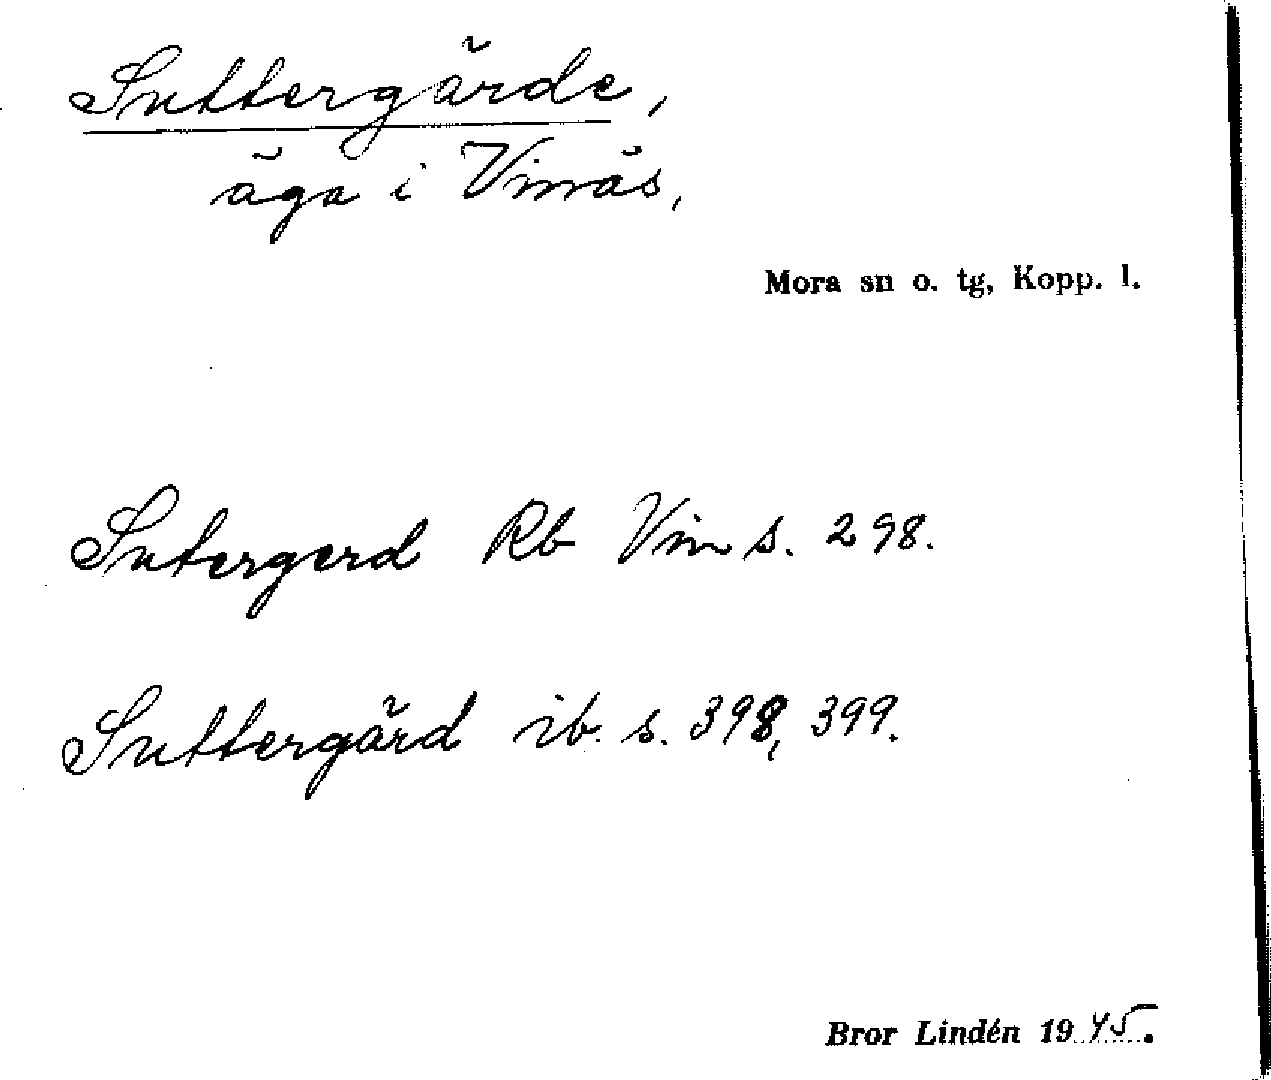 Suttergärde,
äga i Vinäs,
Mora sn o. tg, Kopp. l.
Sutergerd Rb Vin s. 298.
Suttergärd ib. s. 398, 399.
Bror Lindén 1945.